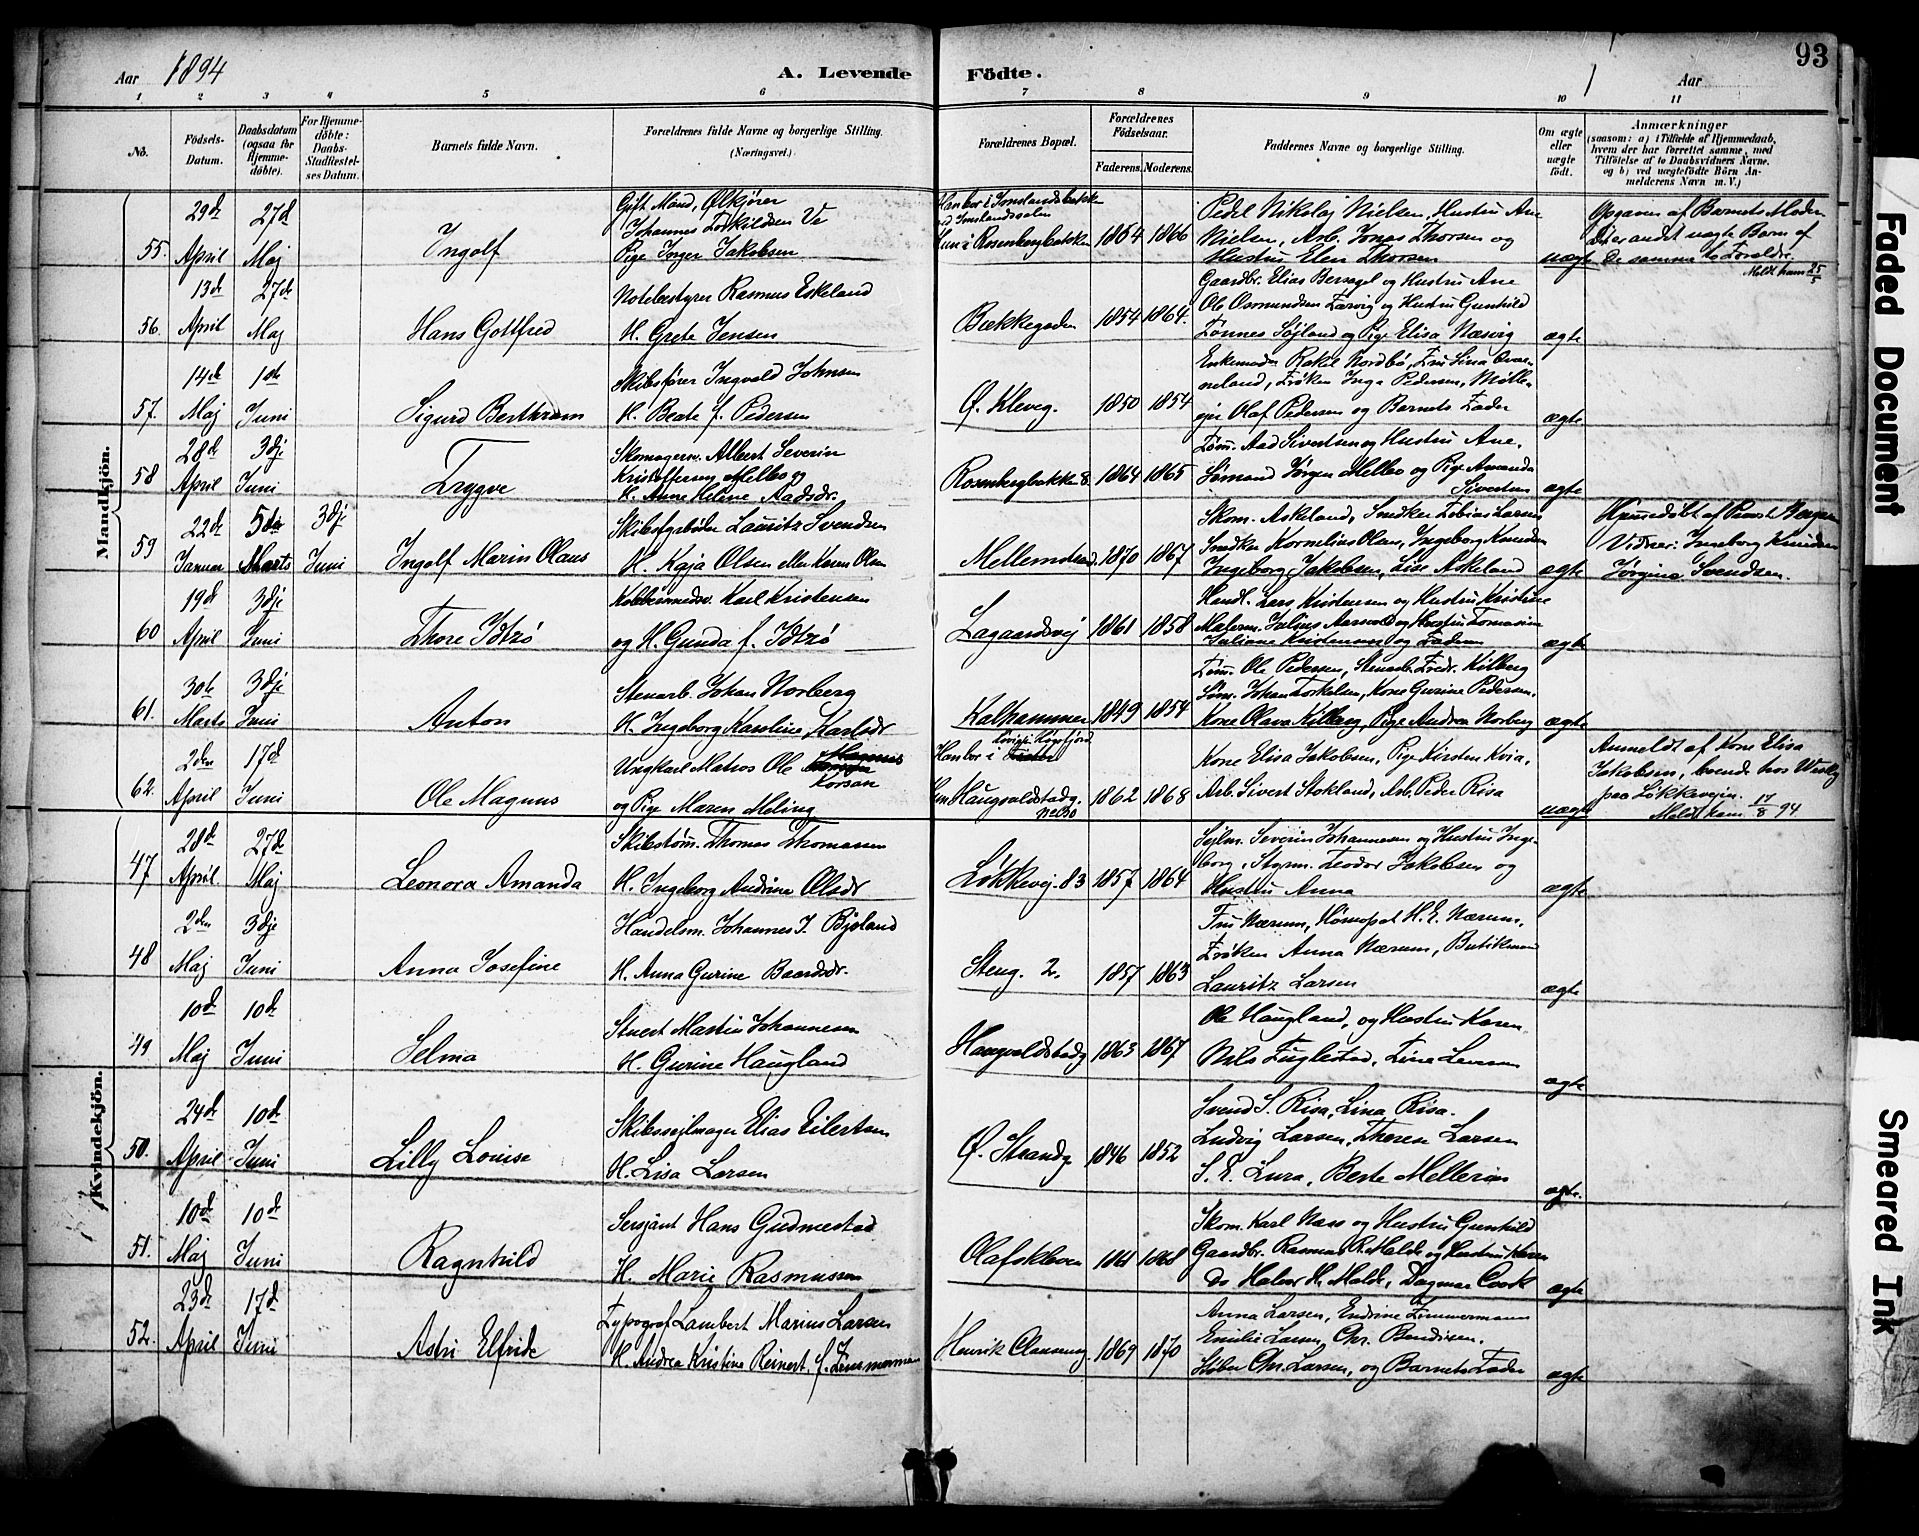 93
Aar 1894 A. Levende Födte. Aar
1 2 3 4 5 6 7 8 9 10 11
No.
Födsels-Datum.
Daabsdatum (ogsaa for Hjemme-döbte).
For Hjemme-döbte: Daabs-Stadfæstel-ses Datum.
Barnets fulde Navn.
Forældrenes fulde Navne og borgerlige Stilling. (Næringsvei.)
Forældrenes Bopæl.
Forældrenes Födselsaar.
Faderens. Moderens.
Faddernes Navne og borgerlige Stilling.
Om ægte eller uægte födt.
Anmærkninger
(saasom: a) i Tilfælde af Hjemmedaab,
hvem der har forrettet samme, med
Tilföielse af to Daabsvidners Navne.
og b) ved uægtefödte Börn An-
melderens Navn m. V.)
Mandkjön.
55. 29de April 27de Maj
Ingolf
Gift Mand, Ølkjører
Johannes Torkildsen
Pige Inger Jakobsen
Rosenbergbakken 1854 1866
Pedel Nikolaj Nielsen, Hustru Ane
Nielsen, Arb. Jonas Thorsen og
Hustru Elen Thorsen
uægte
Opgaven af Barnets Moder
De samme to Foreldre.
56. 13de April 27de Maj
Hans Gottfred
Notebøstyrer Rasmus Eskeland
H. Grete Jensen
Bækkegaden 1854 1864.
Gaardbr. Elias Bersagel og Hustru Ane
Ole Osmundsen Tarvig og Hustru Gunhild
Tønnes Søjland og Pige Elisa Næsvig
ægte
57. 14de Maj 1ste Juni
Sigurd Berthram
Skibsfører Ingvald Johnsen
H. Beate f. Pedersen
Ø. Kleveg. 1850 1854
Enkemadm Rakel Nordbö, Fru Lina
Frøken Inga Pedersen, Mølle-
ejer Olaf Pedersen og Barnets Fader
ægte
58 28de April 3dje Juni
Trygve
Skomagersv. Albert Severin
Kristoffersen Mellbo og
H. Anne Helene Aadsdr.
Rosenbergbakken 8 1864 1865
Tøm. Aad Sivertsen og Hustru Ane.
Sømand Jørgen Mellbo og Pige Amanda
Sivertsen
ægte
59 22de Januar 5te Marts 3dje Juni
Ingolf Marin Olaus
Lauritz Svendsen
H. Kaja Olsen eller Karen Olsen
Mellemstrand. 1870 1867
Skom. Askeland, Snedker Tobias Larsen
Snedker Kornelius Olsen, Ingeborg Knudsen
Ingeborg Jakobsen, Lise Askeland
ægte
Hjemmedöbt af
Vidner: Ingeborg Knudsen
Jörgine Svendsen.
60 19de April 3dje Juni
Thore Idtzö
Kobbersmedsv. Karl Kristensen
og H. Gunda f. Idtzö
Lagaardsvej 1861 1858
Handl. Lars Kristensen og Hustru Kristine
Malerm. Julius Aarvold og Hustru Tomasine
Juliane Kristensen og Faderen
ægte
61. 30te Marts 3dje Juni
Anton
Stenarb. Johan Norberg
H. Ingeborg Karoline Karlsdr
Kalhammer 1849 1854
Tøm. Ole Pedersen, Stenarb. Fredr. Kilberg
Søm. Johan Torkelsen, Kone Gurine Pedersen.
Kone Olava Kilberg, Pige Andrea Norberg
ægte
62. 2den April 17de Juni
Ole Magnus
Ungkarl Matros Ole
Korsan
og Pige Maren Meling
Han bor i
Haugvaldstadg. 1862 1868
Kone Elisa Jakobsen, Pige Kirsten Kvia,
Arb. Sivert Stokland, Arb. Peder Risa
uægte
Anmeldt af Kone Elisa
Jakobsen, boende hos
paa Løkkevejen.
17/8 94
Kvindekjön.
47 28de April 27de Maj
Leonora Amanda
Skibstøm. Thomas Thomassen
H. Ingeborg Andrine Olsdr
Løkkevej 83 1857 1864
Sejlm. Severin Johannesen og Hustru Inge-
borg, Styrm. Teodor Jakobsen og
Hustru Anna
ægte
48 2den Maj 3dje Juni
Anna Josefine
Handelsm. Johannes J. Byeland
H. Anna Gurine Baardsdr.
Steng. 2. 1857 1863
Fru Nærum, Hömopat H. E. Nærum,
Frøken Anna Nærum, Butikmand
Lauritz Larsen
ægte
49 10de Maj 10de Juni
Selma
Stuert Martin Johannesen
H. Gurine Haugland
Haugvaldstadg 1863 1867
Ole Haugland, og Hustru Karen
Nils Fuglestad, Tine Larsen
ægte
50. 24de April 10de Juni
Lilly Louise
Skibssejlmager Elias Eilertsen
H. Lisa Larsen
Ø. Strandg 1846 1852
Svend S. Risa, Lina Risa.
Ludvig Larsen, Therese Larsen
S. E. Lura, Berte
ægte.
51. 10de Maj 10de Juni
Ragnhild
Sersjant Hans Gudmestad
H. Marie Rasmussen
Olafskleven 1861 1868
Skom. Karl Næss og Hustru Gunhild
Gaardbr. Rasmus R. Malde og Hustru Karen
do Halvor H. Malde, Dagmar Cook
ægte
52. 23de April 17de Juni
Astri Elfride
Typograf Lambert Marius Larsen
H. Andrea Kristine Reinert, f. Zimmermann
Henrik 1869 1870
Anna Larsen, Endrine Zimmermann
Emilie Larsen, Chr. Bendixen.
Støber Chr. Larsen, og Barnets Fader
ægte
Faded Document
Smeared Ink